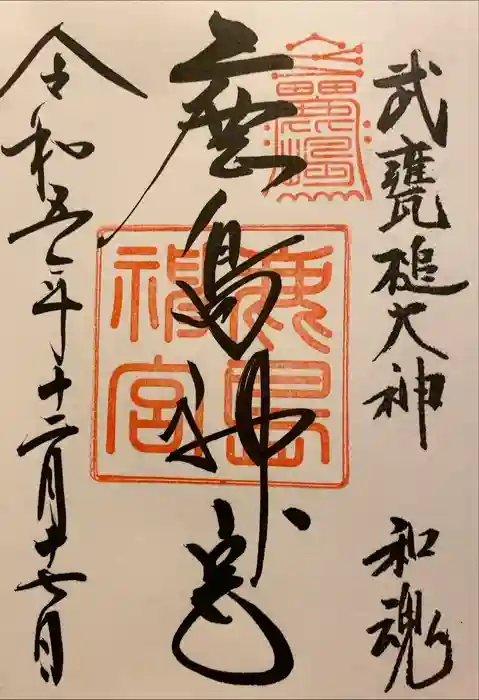 武甕槌大神 和魂
鹿島神宮
令和五年十二月十七日
鹿島神宮